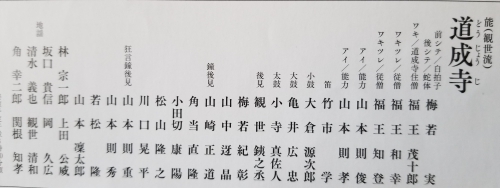 能（観世流）
道成寺
どうじょうじ
前シテ／白拍子
後シテ／蛇体 梅若 実
ワキ／道成寺住僧 福王 茂十郎
ワキツレ／従僧 福王 和幸
ワキツレ／従僧 福王 知登
アイ／能力 山本 則俊
アイ／能力 山本 則孝
笛 竹市 学
小鼓 大倉 源次郎
大鼓 亀井 広忠
太鼓 小寺 真佐人
後見 観世 銕之丞
梅若 紀彰
山中 迓晶
鐘後見 山崎 正道
角当 直隆
小田切 康陽
松山 隆之
川口 晃平
狂言鐘後見 山本 則重
山本 則秀
若松 隆
山本 凜太郎
地謡
林 宗一郎 上田 公威
坂口 貴信 岡 久広
清水 義也 観世 清和
角 幸二郎 関根 知孝